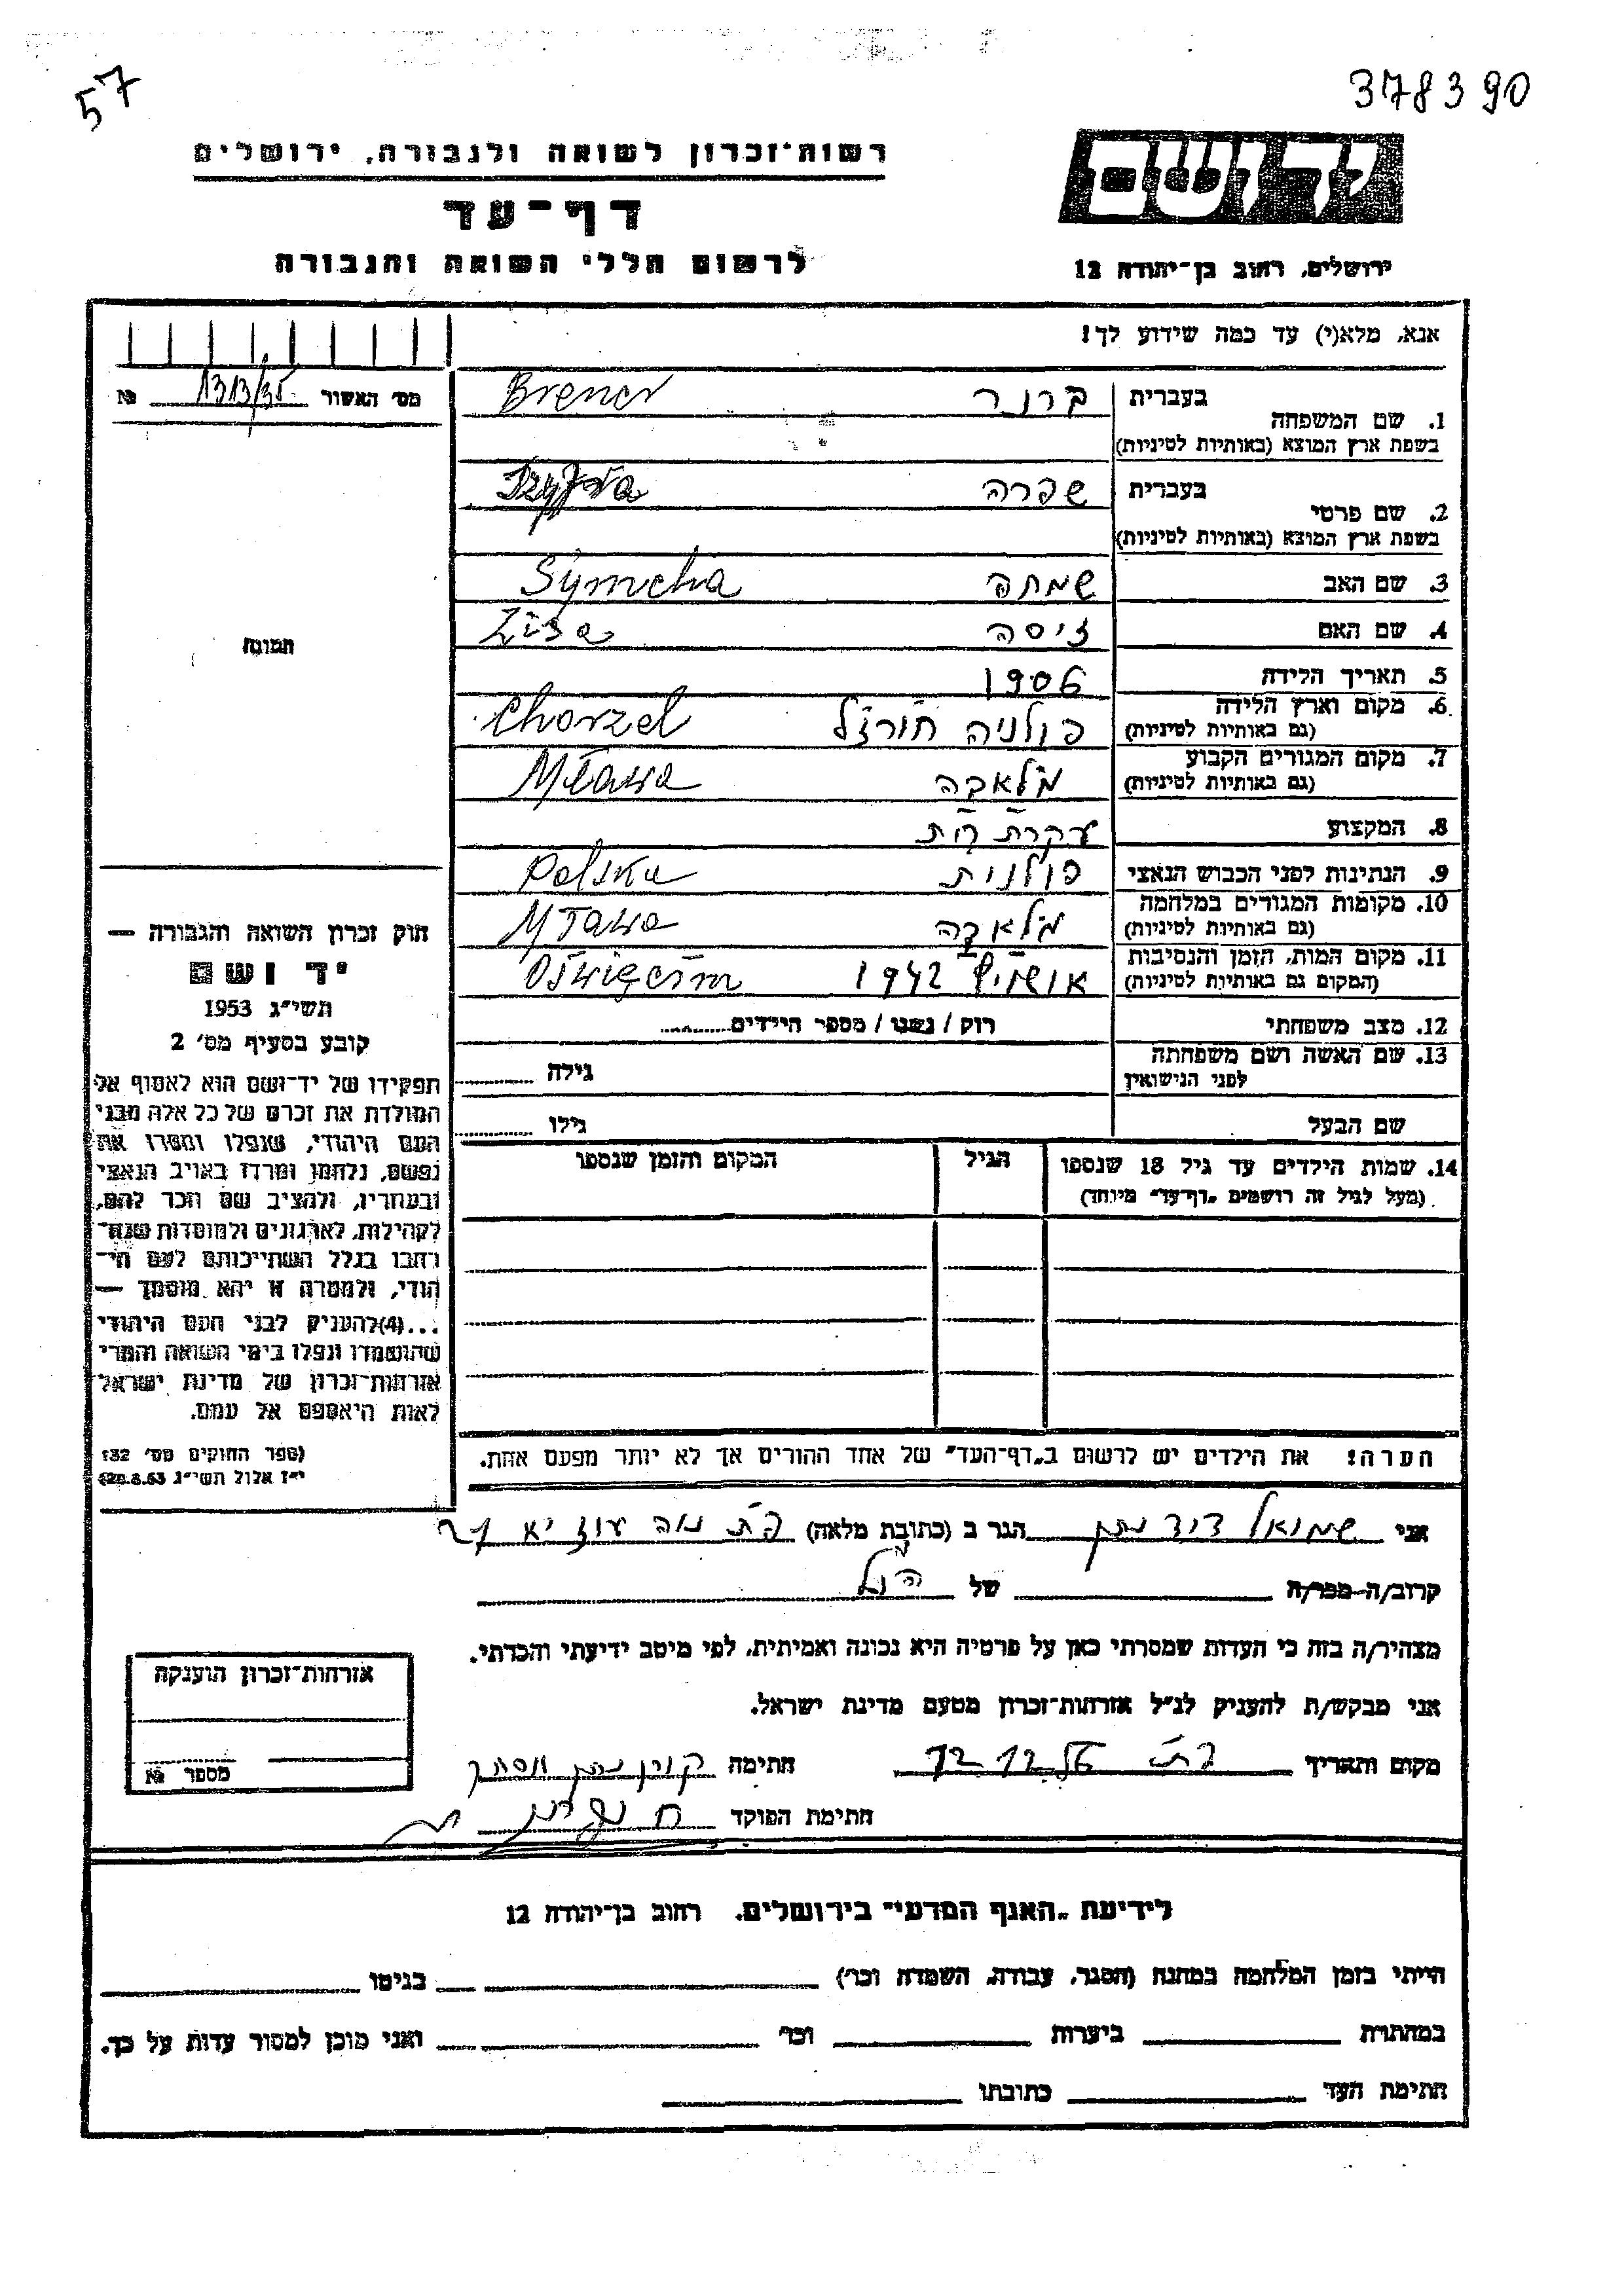 57
378390
רשות־זכרון לשואה ולגבורה, ירושלים
דף־עד
לרשום חללי השואה והגבורה
יד ושם
ירושלים, רחוב בן־יהודה 12
אנא, מלא(י) עד כמה שידוע לך!
מס׳ האשור 1313/35 №
תמונה
1. שם המשפחה
בעברית ברנר Brener
בשפת ארץ המוצא (באותיות לטיניות)
2. שם פרטי
בעברית שפרה
בשפת ארץ המוצא (באותיות לטיניות)
3. שם האב שמחה Symcha
4. שם האם זיסה Zisa
5. תאריך הלידה 1906
6. מקום וארץ הלידה פולניה חורזל Chorzel
(גם באותיות לטיניות)
7. מקום המגורים הקבוע מלאבה Mława
(גם באותיות לטיניות)
8. המקצוע עקרת בית
9. הנתינות לפני הכבוש הנאצי פולנית Polska
10. מקומות המגורים במלחמה מלאבה Mława
(גם באותיות לטיניות)
11. מקום המות, הזמן והנסיבות אושויץ 1942 Oświęcim
(המקום גם באותיות לטיניות)
12. מצב משפחתי רוק / נשוי / מספר הילדים
13. שם האשה ושם משפחתה
לפני הנישואין גילה
שם הבעל גילו
14. שמות הילדים עד גיל 18 שנספו הגיל המקום והזמן שנספו
(מעל לגיל זה רושמים „דף־עד״ מיוחד)
הערה! את הילדים יש לרשום ב„דף־העד״ של אחד ההורים אך לא יותר מפעם אחת.
חוק זכרון השואה והגבורה —
יד ושם
תשי״ג 1953
קובע בסעיף מס׳ 2
תפקידו של יד־ושם הוא לאסוף אל
המולדת את זכרם של כל אלה מבני
העם היהודי, שנפלו ומסרו את
נפשם, נלחמו ומרדו באויב הנאצי
ובעוזריו, ולהציב שם וזכר להם,
לקהילות, לארגונים ולמוסדות שנח־
רבו בגלל השתייכותם לעם הי־
הודי, ולמטרה זו יהא מוסמך —
...(4)להעניק לבני העם היהודי
שהושמדו ונפלו בימי השואה והמרי
אזרחות־זכרון של מדינת ישראל
לאות היאספם אל עמם.
(ספר החוקים מס׳ 132
י״ז אלול תשי״ג 28.8.53)
אני שמואל דוד נתן הגר ב (כתובת מלאה)
קרוב/ה מכר/ה של הנ״ל
מצהיר/ה בזה כי העדות שמסרתי כאן על פרטיה היא נכונה ואמיתית, לפי מיטב ידיעתי והכרתי.
אני מבקש/ת להעניק לנ״ל אזרחות־זכרון מטעם מדינת ישראל.
מקום ותאריך חתימה
חתימת הפוקד
אזרחות־זכרון הוענקה
מספר №
לידיעת „האגף המדעי״ בירושלים. רחוב בן־יהודה 12
הייתי בזמן המלחמה במחנה (הסגר, עבודה, השמדה וכו׳) בגיטו
במחתרת ביערות וכו׳ ואני מוכן למסור עדות על כך.
חתימת העד כתובתו